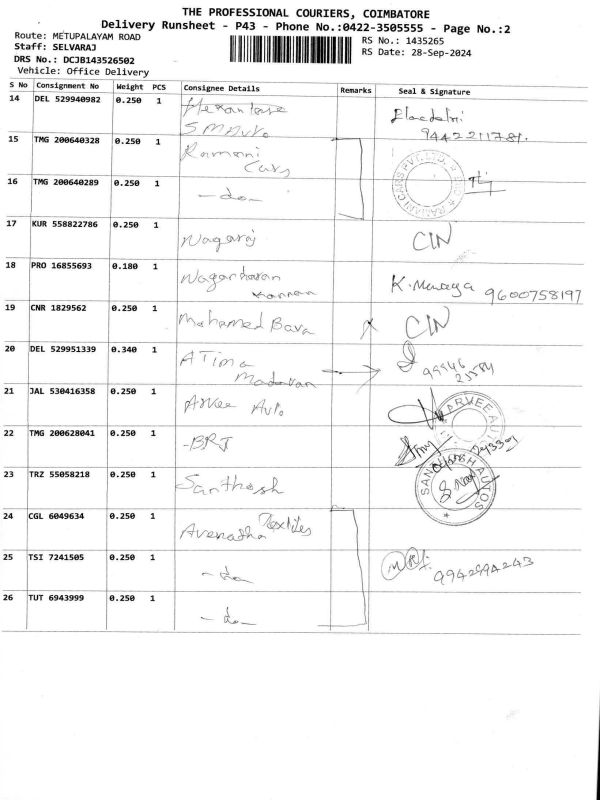 THE PROFESSIONAL COURIERS, COIMBATORE
Delivery Runsheet - P43 - Phone No.:0422-3505555 - Page No.:2
Route: METUPALAYAM ROAD
Staff: SELVARAJ
DRS No.: DCJB143526502
Vehicle: Office Delivery
RS No.: 1435265
RS Date: 28-Sep-2024
S No Consignment No Weight PCS Consignee Details Remarks Seal & Signature
14 DEL 529940982 0.250 1
9442211781.
15 TMG 200640328 0.250 1 Ramani
Cars
16 TMG 200640289 0.250 1 -do-
17 KUR 558822786 0.250 1 Nagaraj
18 PRO 16855693 0.180 1
Kannan K. Menaga 9600758197
19 CNR 1829562 0.250 1 Mohamed Bava
20 DEL 529951339 0.340 1 ATima
Madavan
21 JAL 530416358 0.250 1 Arvee Auto
22 TMG 200628041 0.250 1
23 TRZ 55058218 0.250 1 Santhosh
SANTHOSH AUTOS
24 CGL 6049634 0.250 1 Textiles
25 TSI 7241505 0.250 1 -do- 9942994243
26 TUT 6943999 0.250 1 -do-